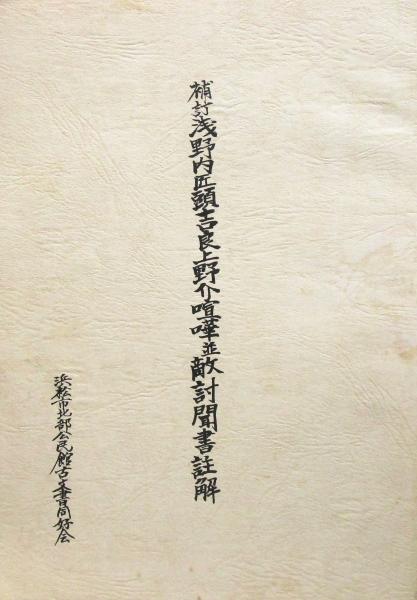 補訂浅野内匠頭吉良上野介喧嘩並敵討聞書註解
浜松市北部公民館古文書同好会